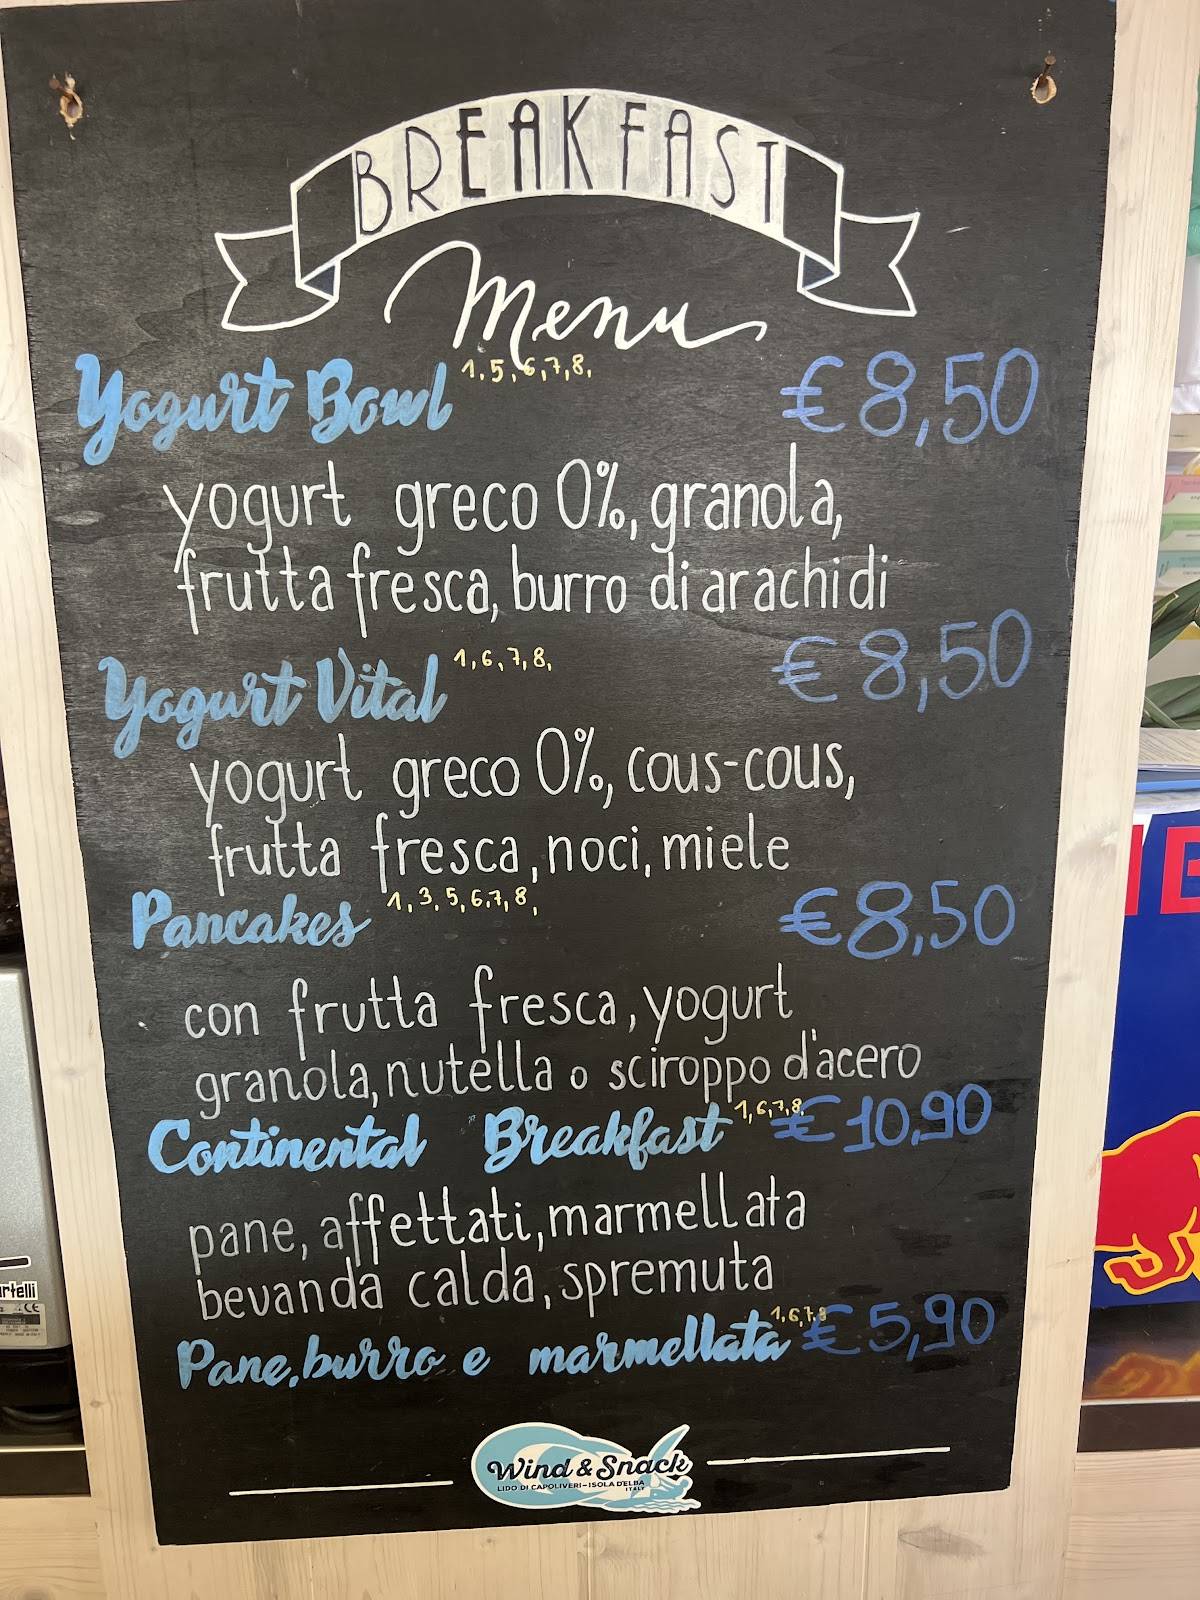 BREAKFAST
Menu
Yogurt Bowl 1,5,6,7,8, €8,50
yogurt greco 0%, granola,
frutta fresca, burro di arachidi
Yogurt Vital 1,6,7,8, €8,50
yogurt greco 0%, cous-cous,
frutta fresca, noci, miele
Pancakes 1,3,5,6,7,8, €8,50
con frutta fresca, yogurt
granola, nutella o sciroppo d'acero
Continental Breakfast 1,6,7,8, €10,90
pane, affettati, marmellata
bevanda calda, spremuta
Pane, burro e marmellata 1,6,7,8 €5,90
Wind & Snack
LIDO DI CAPOLIVERI - ISOLA D'ELBA
ITALY